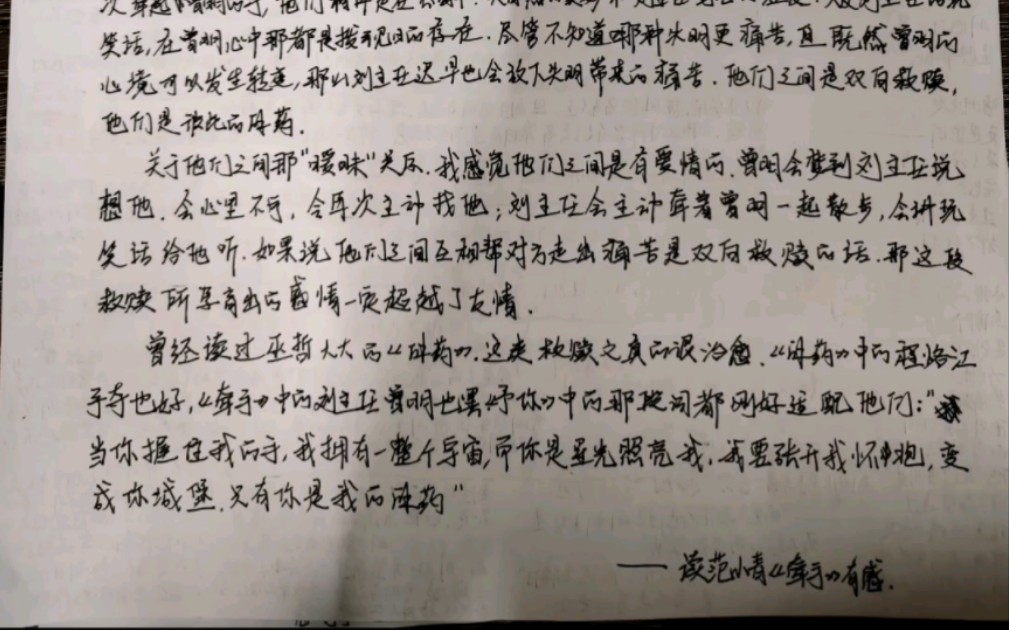 笑话,在曾明心中那都是拨云见日的存在.尽管不知道哪种失明更痛苦,且既然曾明的
心境可以发生转变,那么刘主任迟早也会放下失明带来的痛苦.他们之间是双向救赎,
他们是彼此的解药.
关于他们之间那"暧昧"关系.我感觉他们之间是有爱情的.曾明会等到刘主任说
想他.会心里不安,会再次主动找他;刘主任会主动牵着曾明一起散步,会讲玩
笑话给他听.如果说他们之间互相帮对方走出痛苦是双向救赎的话.那这段
救赎所孕育出的感情一定超越了友情.
曾经读过巫哲大大的《解药》.这类救赎文真的很治愈.《解药》中的程恪江
予夺也好,《牵手》中的刘主任曾明也罢《予你》中的那段词都刚好适配他们:"
当你握住我的手,我拥有一整个宇宙,而你是星光照亮我;我要张开我怀抱,变
成你城堡.只有你是我的解药"
——读范小青《牵手》有感.